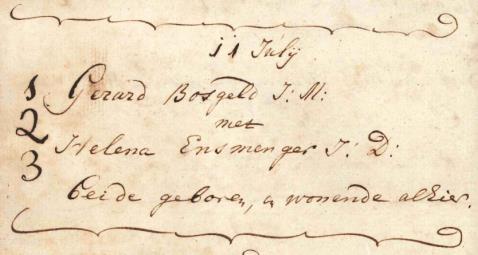 11 Julij
1 Gerard Bosgeld J: M:
2 met
3 Helena Ensmenger J: D:
beide geboren, en wonende alhier.